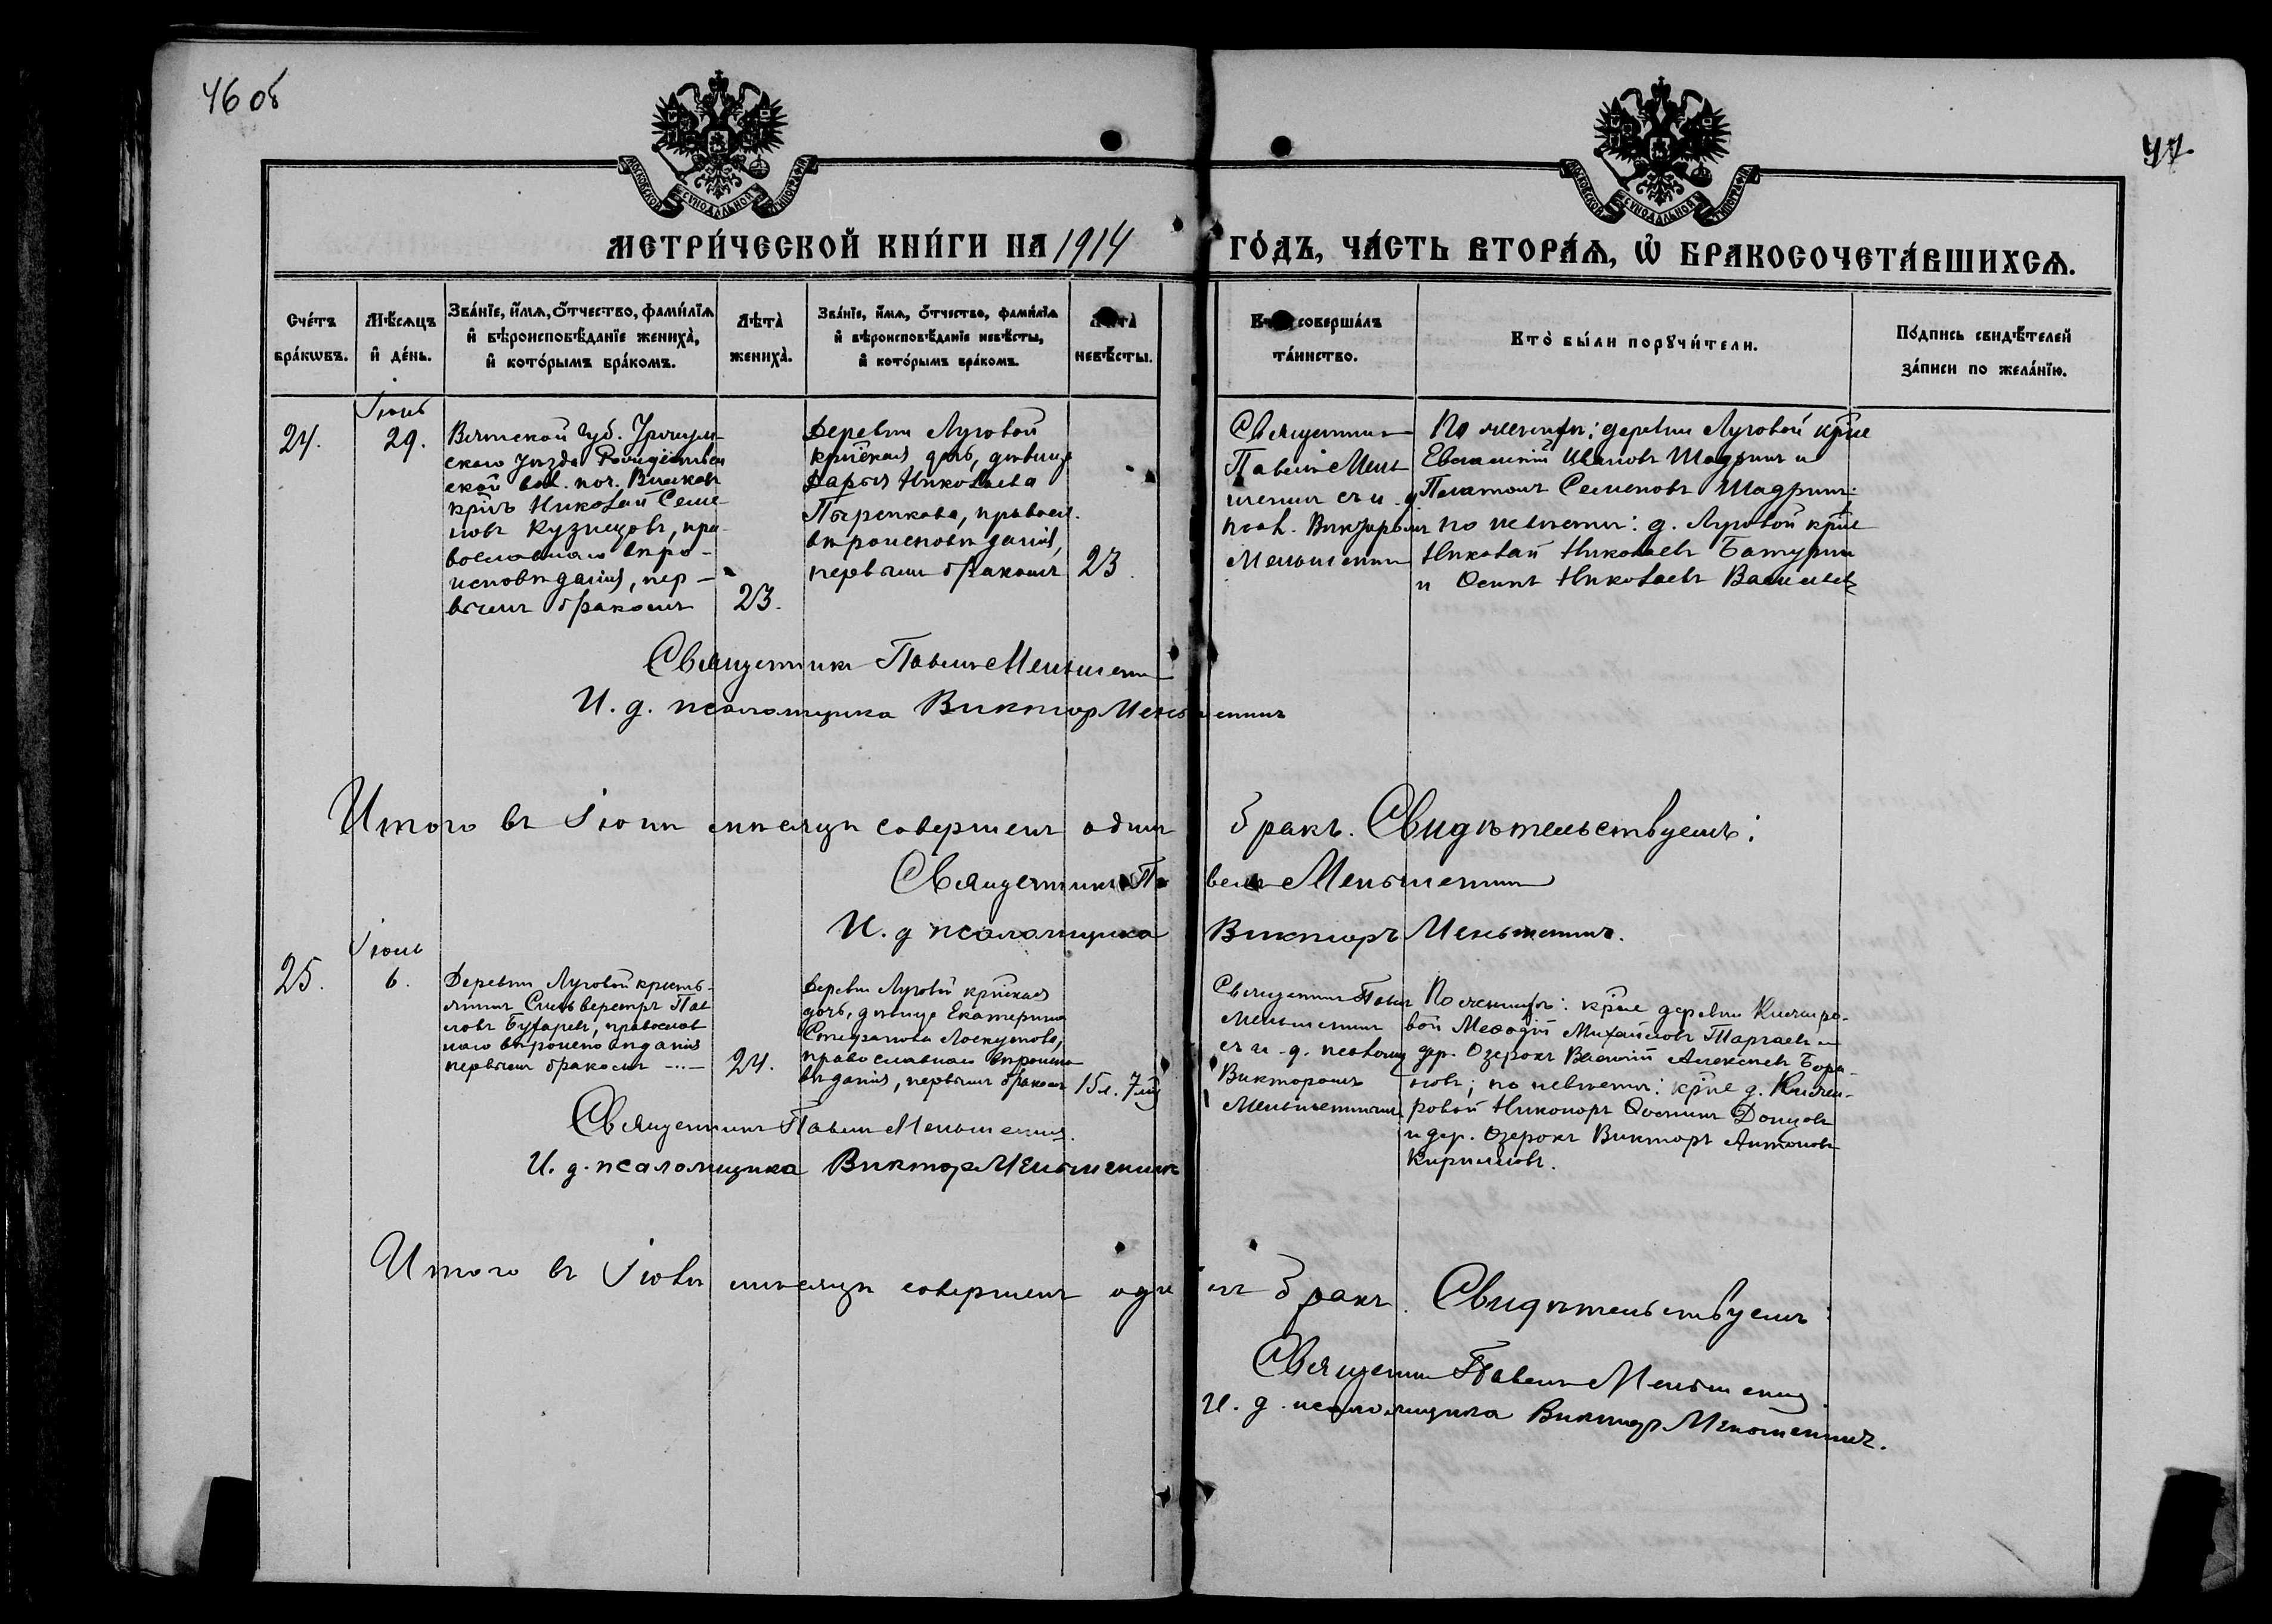 46 об
47
МЕТРИ́ЧЕСКОЙ КНИ́ГИ НА 1914 ГО́ДЪ, ЧА́СТЬ ВТОРА́Ѧ, Ѡ҆ БРАКОСОЧЕТА́ВШИХСѦ.
МОСКОВСКОЙ СѴНОДАЛЬНОЙ ТИПОГРАФІИ
МОСКОВСКОЙ СѴНОДАЛЬНОЙ ТИПОГРАФІИ
Сче́тъ
бра́кѡвъ.
Мѣ́сяцъ
и҆ де́нь.
Зва́нїе, и҆́мѧ, ѻ҆́тчество, фами́лїѧ
и҆ вѣроисповѣ́данїе жениха̀,
и҆ кото́рымъ бра́комъ.
Лѣта̀
жениха̀.
Зва́нїе, и҆́мѧ, ѻ҆́тчество, фами́лїѧ
и҆ вѣроисповѣ́данїе невѣ́сты,
и҆ кото́рымъ бра́комъ.
Лѣта̀
невѣ́сты.
Кто̀ соверша́лъ
та́инство.
Кто̀ бы́ли порꙋчи́тели.
По́дпись свидѣ́телей
за́писи по жела́нїю.
24.
Іюнь
29.
Вятской губ. Уржум-
скаго уѣзда Рождественс
ской вол. поч.
кр̃нъ Николай Семе
новъ Кузнецовъ, пра-
вославнаго вѣро-
исповѣданія, пер-
вымъ бракомъ
23.
Деревни Луговой
кр̃нская дочь, дѣвица
Дарья Николаева
правосл.
вѣроисповѣданія,
первымъ бракомъ
23.
Священникъ
Павелъ Мень
шенинъ съ и. д
псал. Викторомъ
Меньшенин
По женихѣ: деревни Луговой кр̃не
Ивановъ Шадринъ и
Платонъ Семеновъ Шадринъ;
по невѣстѣ: д. Луговой кр̃не
Николай Николаевъ Батурин
и Осипъ Николаевъ Васильевъ
Священникъ Павелъ Меньшенин
И. д. псаломщика Виктор Меньшенинъ
Итого въ Іюнѣ мѣсяцѣ совершенъ одинъ бракъ. Свидѣтельствуемъ:
Священникъ Павелъ Меньшенин
И. д псаломщика Викторъ Меньшенинъ.
25.
Іюль
6.
Деревни Луговой кресть-
янинъ Сильверстръ Пав
ловъ Бухаревъ, православ
наго вѣроисповѣданія
первымъ бракомъ
24.
Деревни Луговой кр̃нская
дочь, дѣвица Екатерина
Стефанова Лоскутова,
православнаго вѣроиспо-
вѣданія, первымъ бракомъ
15 л. 7 мц
Священникъ Павел
Меньшенинъ
съ и. д. псаломщ
Викторомъ
Меньшенинымъ
По женихѣ: кр̃не деревни Кияшро-
вой Меѳодій Михайловъ Таргаевъ и
дер. Озерокъ Василій Алексѣевъ Бора-
новъ; по невѣстѣ: кр̃не д.
ровой Никоноръ Осиповъ Донцовъ
и дер. Озерокъ Викторъ Антоновъ
Кирилловъ.
Священникъ Павелъ Меньшенинъ.
И. д. псаломщика Виктор Меньшенинъ
Итого въ Іюлѣ мѣсяцѣ совершенъ одинъ бракъ. Свидѣтельствуемъ:
Священник Павелъ Меньшенин
И. д. псаломщика Виктор Меньшенинъ.